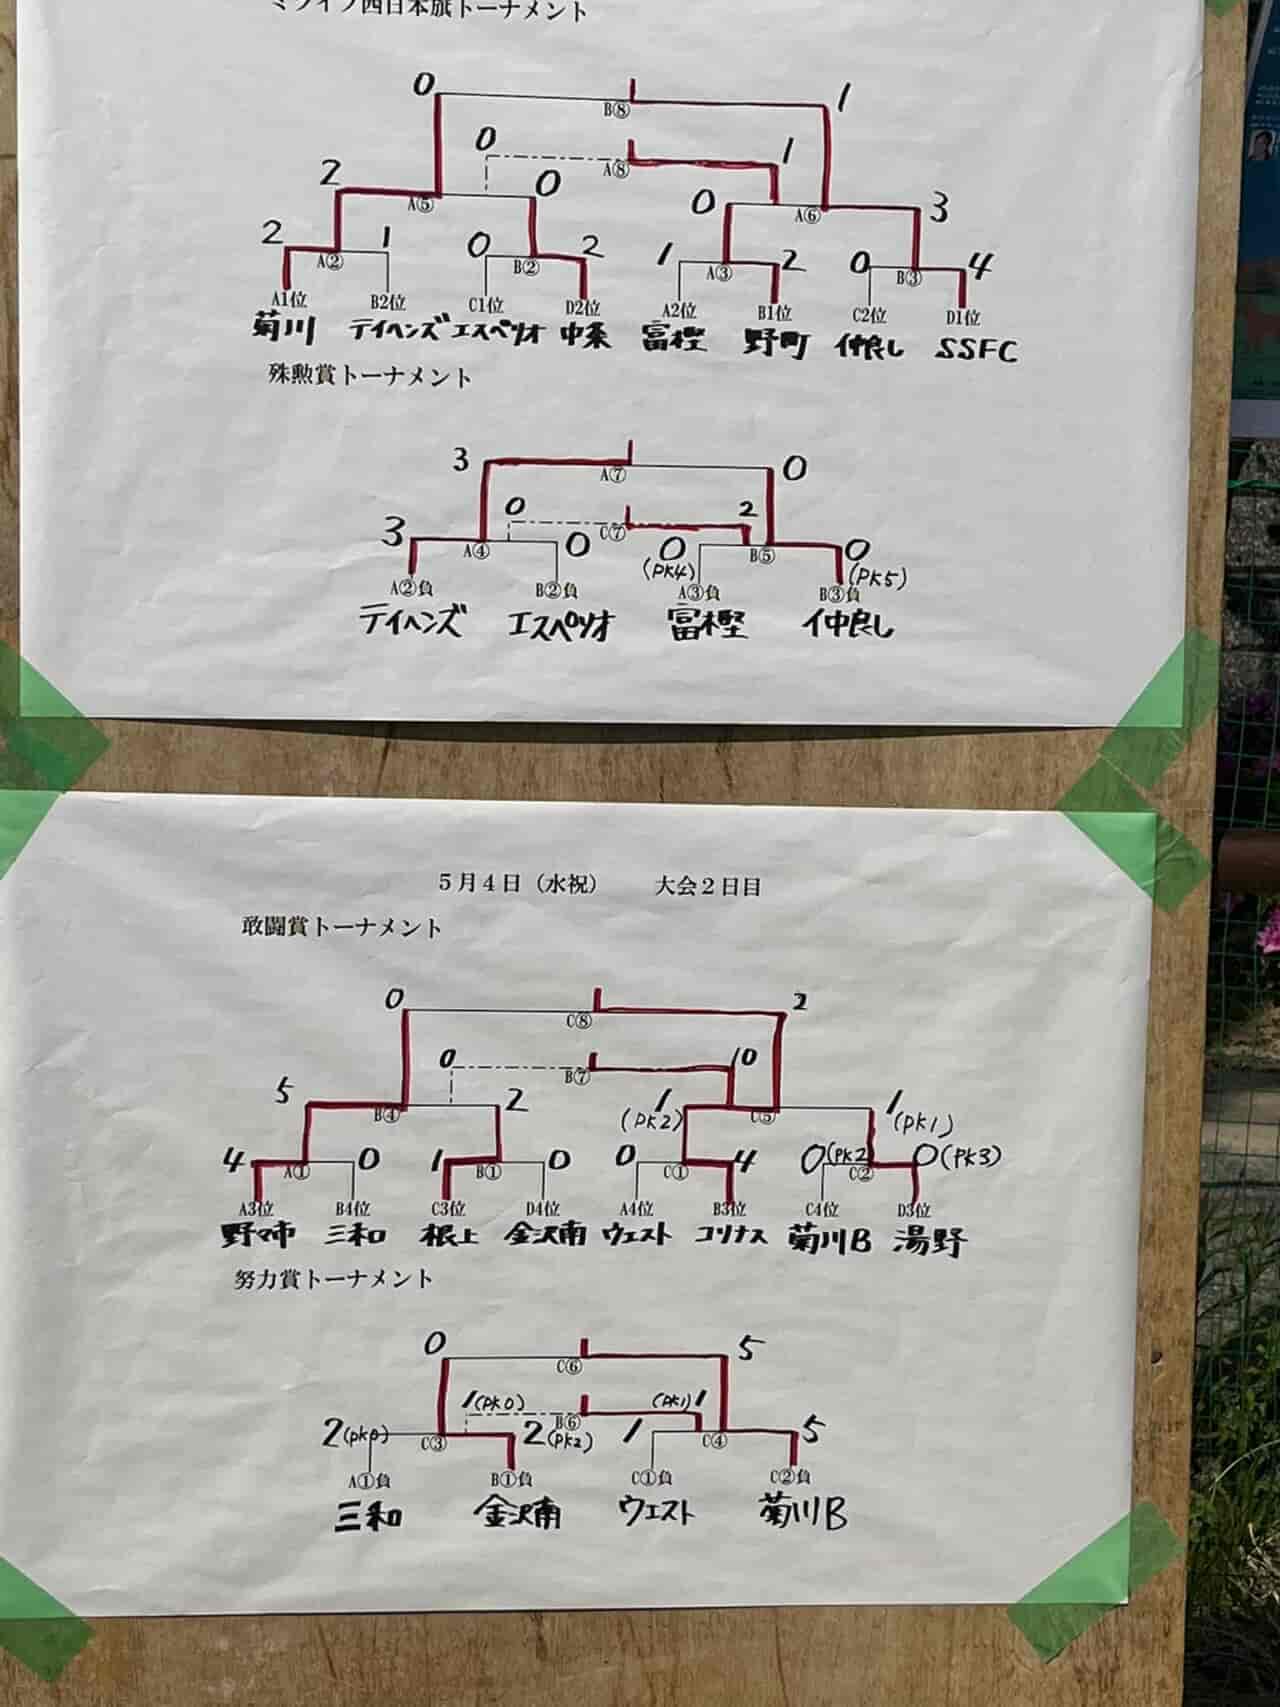 西日本旗トーナメント
0 1
B⑧
0 1
A⑧
2 0 0 3
A⑤ A⑥
2 1 0 2 1 2 0 4
A② B② A③ B③
A1位 B2位 C1位 D2位 A2位 B1位 C2位 D1位
菊川 テイヘンズ エスペリオ 中条 富樫 野町 仲良し SSFC
殊勲賞トーナメント
3 0
A⑦
0 2
C⑦
3 0 0 (PK4) 0 (PK5)
A④ B⑤
A②負 B②負 A③負 B③負
テイヘンズ エスペリオ 富樫 仲良し
5月4日（水祝） 大会2日目
敢闘賞トーナメント
0 2
C⑧
0 10
B⑦
5 2 1 (PK2) 1 (PK1)
B④ C⑤
4 0 1 0 0 4 0(PK2 0(PK3)
A① B① C① C②
A3位 B4位 C3位 D4位 A4位 B3位 C4位 D3位
野々市 三和 根上 金沢南 ウェスト コリナス 菊川B 湯野
努力賞トーナメント
0 5
C⑥
1(PK0) (PK1)1
B⑥
2(PK0) 2(PK2) 1 5
C③ C④
A①負 B①負 C①負 C②負
三和 金沢南 ウェスト 菊川B